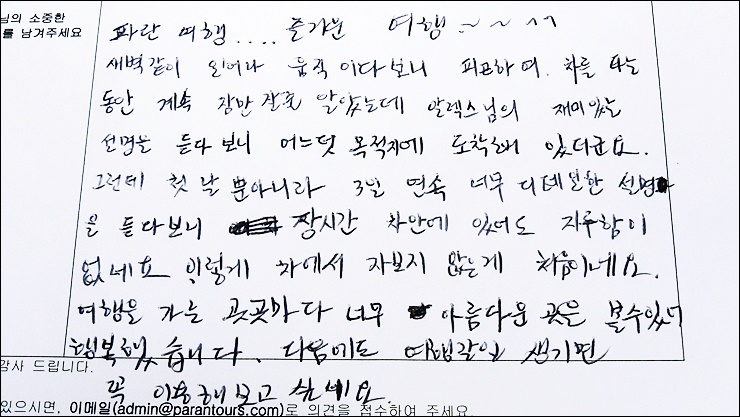 님의 소중한
를 남겨주세요
파란 여행.... 즐거운 여행~~^^
새벽같이 일어나 움직이다보니 피곤하여. 차를 타는
동안 계속 잠만 잘줄 알았는데 알렉스님의 재미있는
설명을 듣다 보니 어느덧 목적지에 도착해 있더군요.
그런데 첫 날 뿐아니라 3일 연속 너무 디테일한 설명
을 듣다보니 장시간 차안에 있어도 지루함이
없네요 이렇게 차에서 자보지 않는게 처음이네요.
여행을 가는 곳곳마다 너무 아름다운 곳을 볼수있어
행복했습니다. 다음에도 여행갈일 생기면
꼭 이용해보고 싶네요.
감사 드립니다.
있으시면, 이메일(admin@parantours.com)로 의견을 접수하여 주세요.